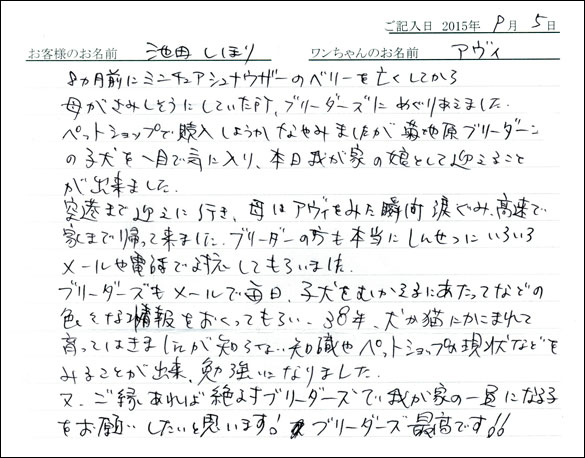 ご記入日 2015年 9月 5日
お客様のお名前 池田 しほり ワンちゃんのお名前 アヴィ
8カ月前にミニチュアシュナウザーのベリーを亡くしてから
母がさみしそうにしていた所、ブリーダーズにめぐりあえました。
ペットショップで購入しようかなやみましたが菊地原ブリーダーン
の子犬を一目で気に入り、本日我が家の娘として迎えること
が出来ました。
空港まで迎えに行き、母はアヴィをみた瞬間涙ぐみ、高速で
家まで帰って来ました。ブリーダーの方も本当にしんせつにいろいろ
メールや電話で対応してもらいました。
ブリーダーズもメールで毎日、子犬をむかえるにあたってなどの
色々な情報をおくってもらい、38年、犬か猫にかこまれて
育ってはきましたが知らない知識やペットショップの現状などを
みることが出来、勉強になりました。
又、ご縁あれば絶えずブリーダーズで我が家の一員になる子
をお願いしたいと思います! ブリーダーズ最高です!!